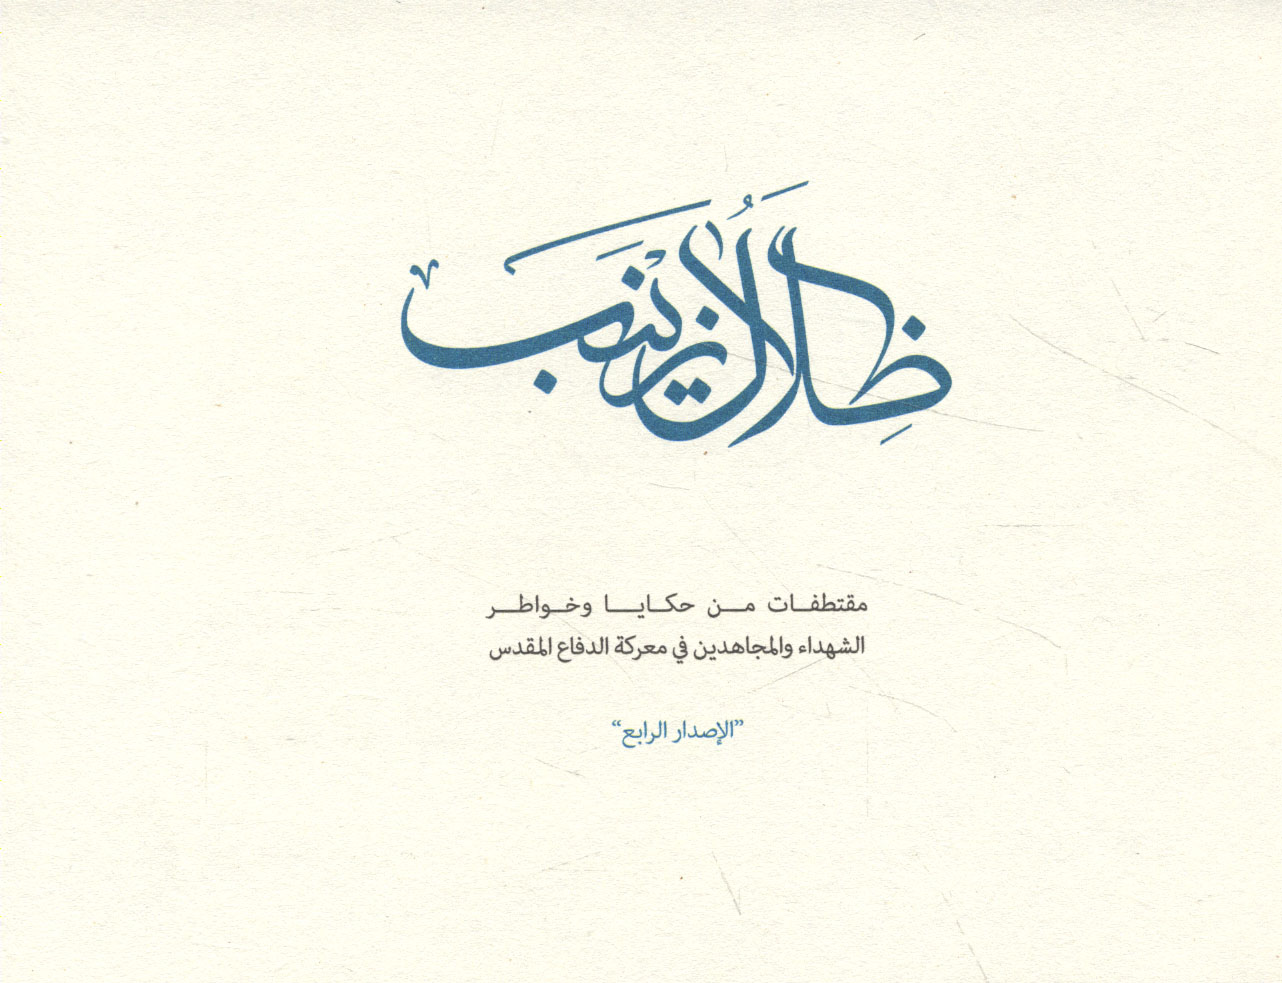 ظِلَالُ زَيْنَب
مقتطفات من حكايا وخواطر
الشهداء والمجاهدين في معركة الدفاع المقدس
”الإصدار الرابع“